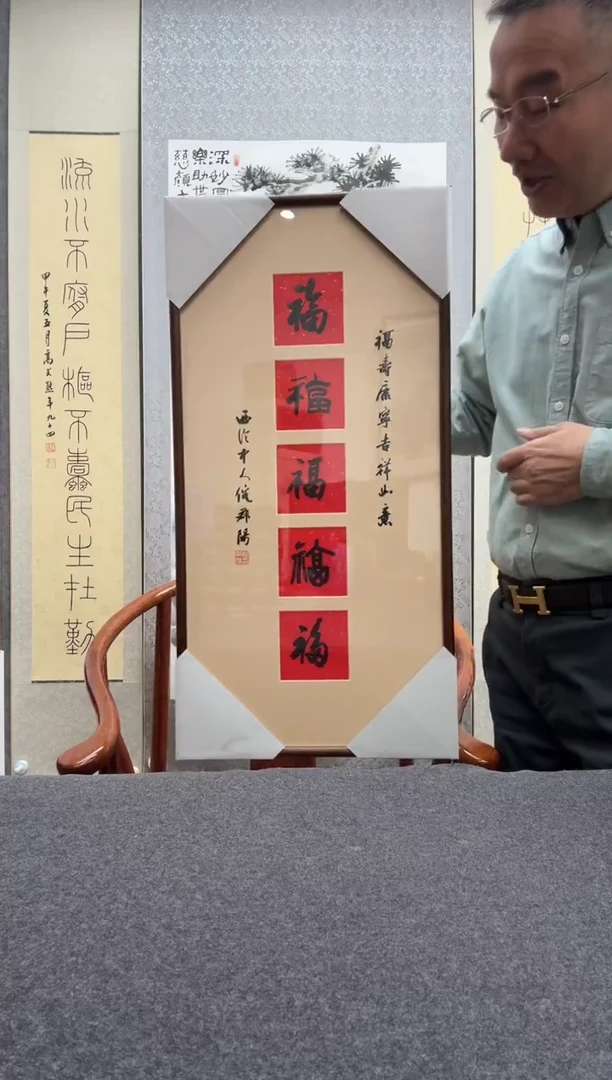 深妙
樂助世
慈顏
福壽康寧吉祥如意
福
福
福
福
福
西泠中人
流水不腐戶樞不蠹民生在勤
甲午夏五月高式熊年九十四